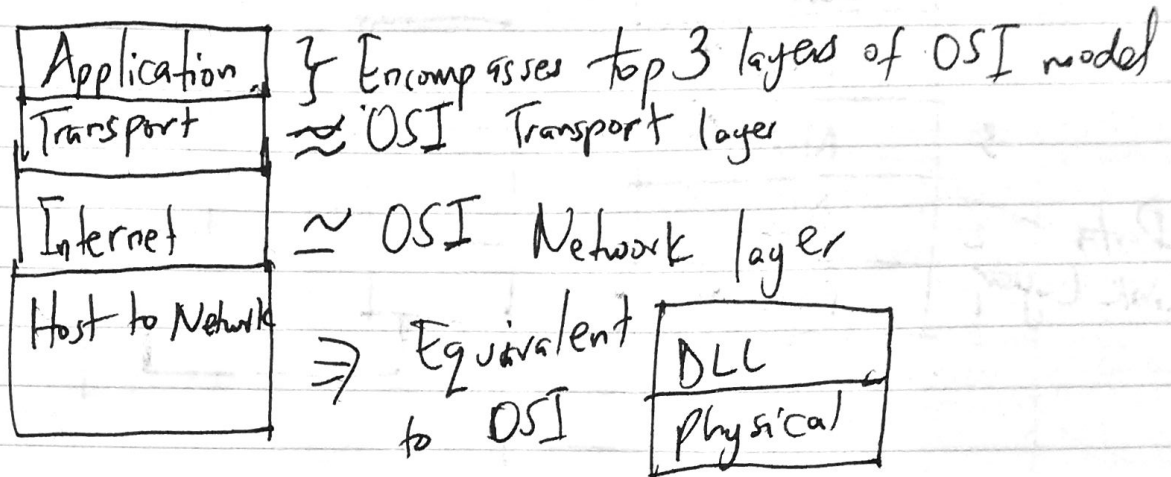 Application } Encompasses top 3 layers of OSI model
Transport ≈ OSI Transport layer
Internet ≃ OSI Network layer
Host to Network ⇒ Equivalent
to OSI
DLL
Physical